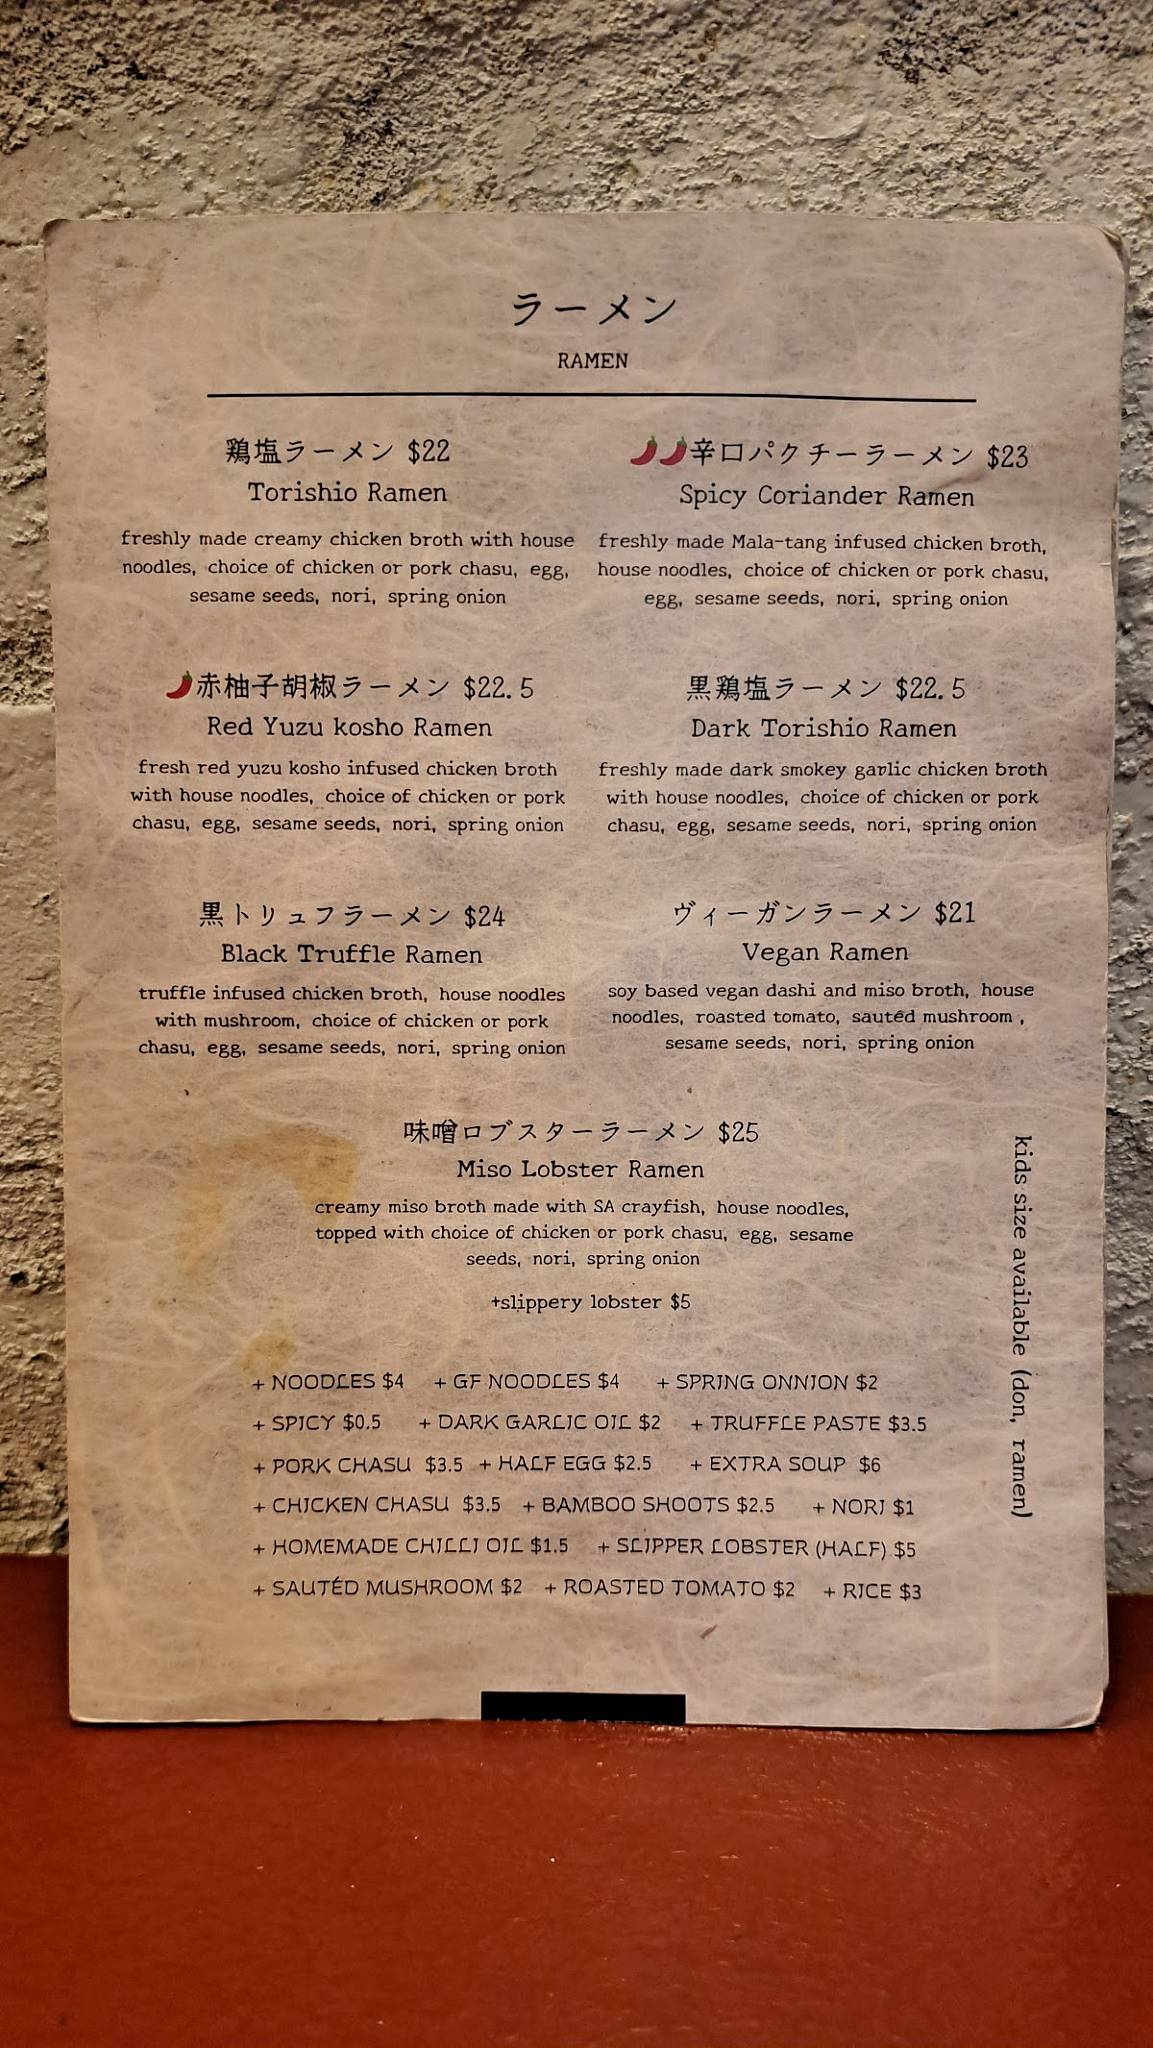 ラーメン
RAMEN
鶏塩ラーメン $22
Torishio Ramen
freshly made creamy chicken broth with house
noodles, choice of chicken or pork chasu, egg,
sesame seeds, nori, spring onion
🌶🌶辛口パクチーラーメン $23
Spicy Coriander Ramen
freshly made Mala-tang infused chicken broth,
house noodles, choice of chicken or pork chasu,
egg, sesame seeds, nori, spring onion
🌶赤柚子胡椒ラーメン $22.5
Red Yuzu kosho Ramen
fresh red yuzu kosho infused chicken broth
with house noodles, choice of chicken or pork
chasu, egg, sesame seeds, nori, spring onion
黒鶏塩ラーメン $22.5
Dark Torishio Ramen
freshly made dark smokey garlic chicken broth
with house noodles, choice of chicken or pork
chasu, egg, sesame seeds, nori, spring onion
黒トリュフラーメン $24
Black Truffle Ramen
truffle infused chicken broth, house noodles
with mushroom, choice of chicken or pork
chasu, egg, sesame seeds, nori, spring onion
ヴィーガンラーメン $21
Vegan Ramen
soy based vegan dashi and miso broth, house
noodles, roasted tomato, sautéd mushroom ,
sesame seeds, nori, spring onion
味噌ロブスターラーメン $25
Miso Lobster Ramen
creamy miso broth made with SA crayfish, house noodles,
topped with choice of chicken or pork chasu, egg, sesame
seeds, nori, spring onion
+slippery lobster $5
kids size available (don, ramen)
+ NOODLES $4 + GF NOODLES $4 + SPRING ONNION $2
+ SPICY $0.5 + DARK GARLIC OIL $2 + TRUFFLE PASTE $3.5
+ PORK CHASU $3.5 + HALF EGG $2.5 + EXTRA SOUP $6
+ CHICKEN CHASU $3.5 + BAMBOO SHOOTS $2.5 + NORI $1
+ HOMEMADE CHILLI OIL $1.5 + SLIPPER LOBSTER (HALF) $5
+ SAUTÉD MUSHROOM $2 + ROASTED TOMATO $2 + RICE $3